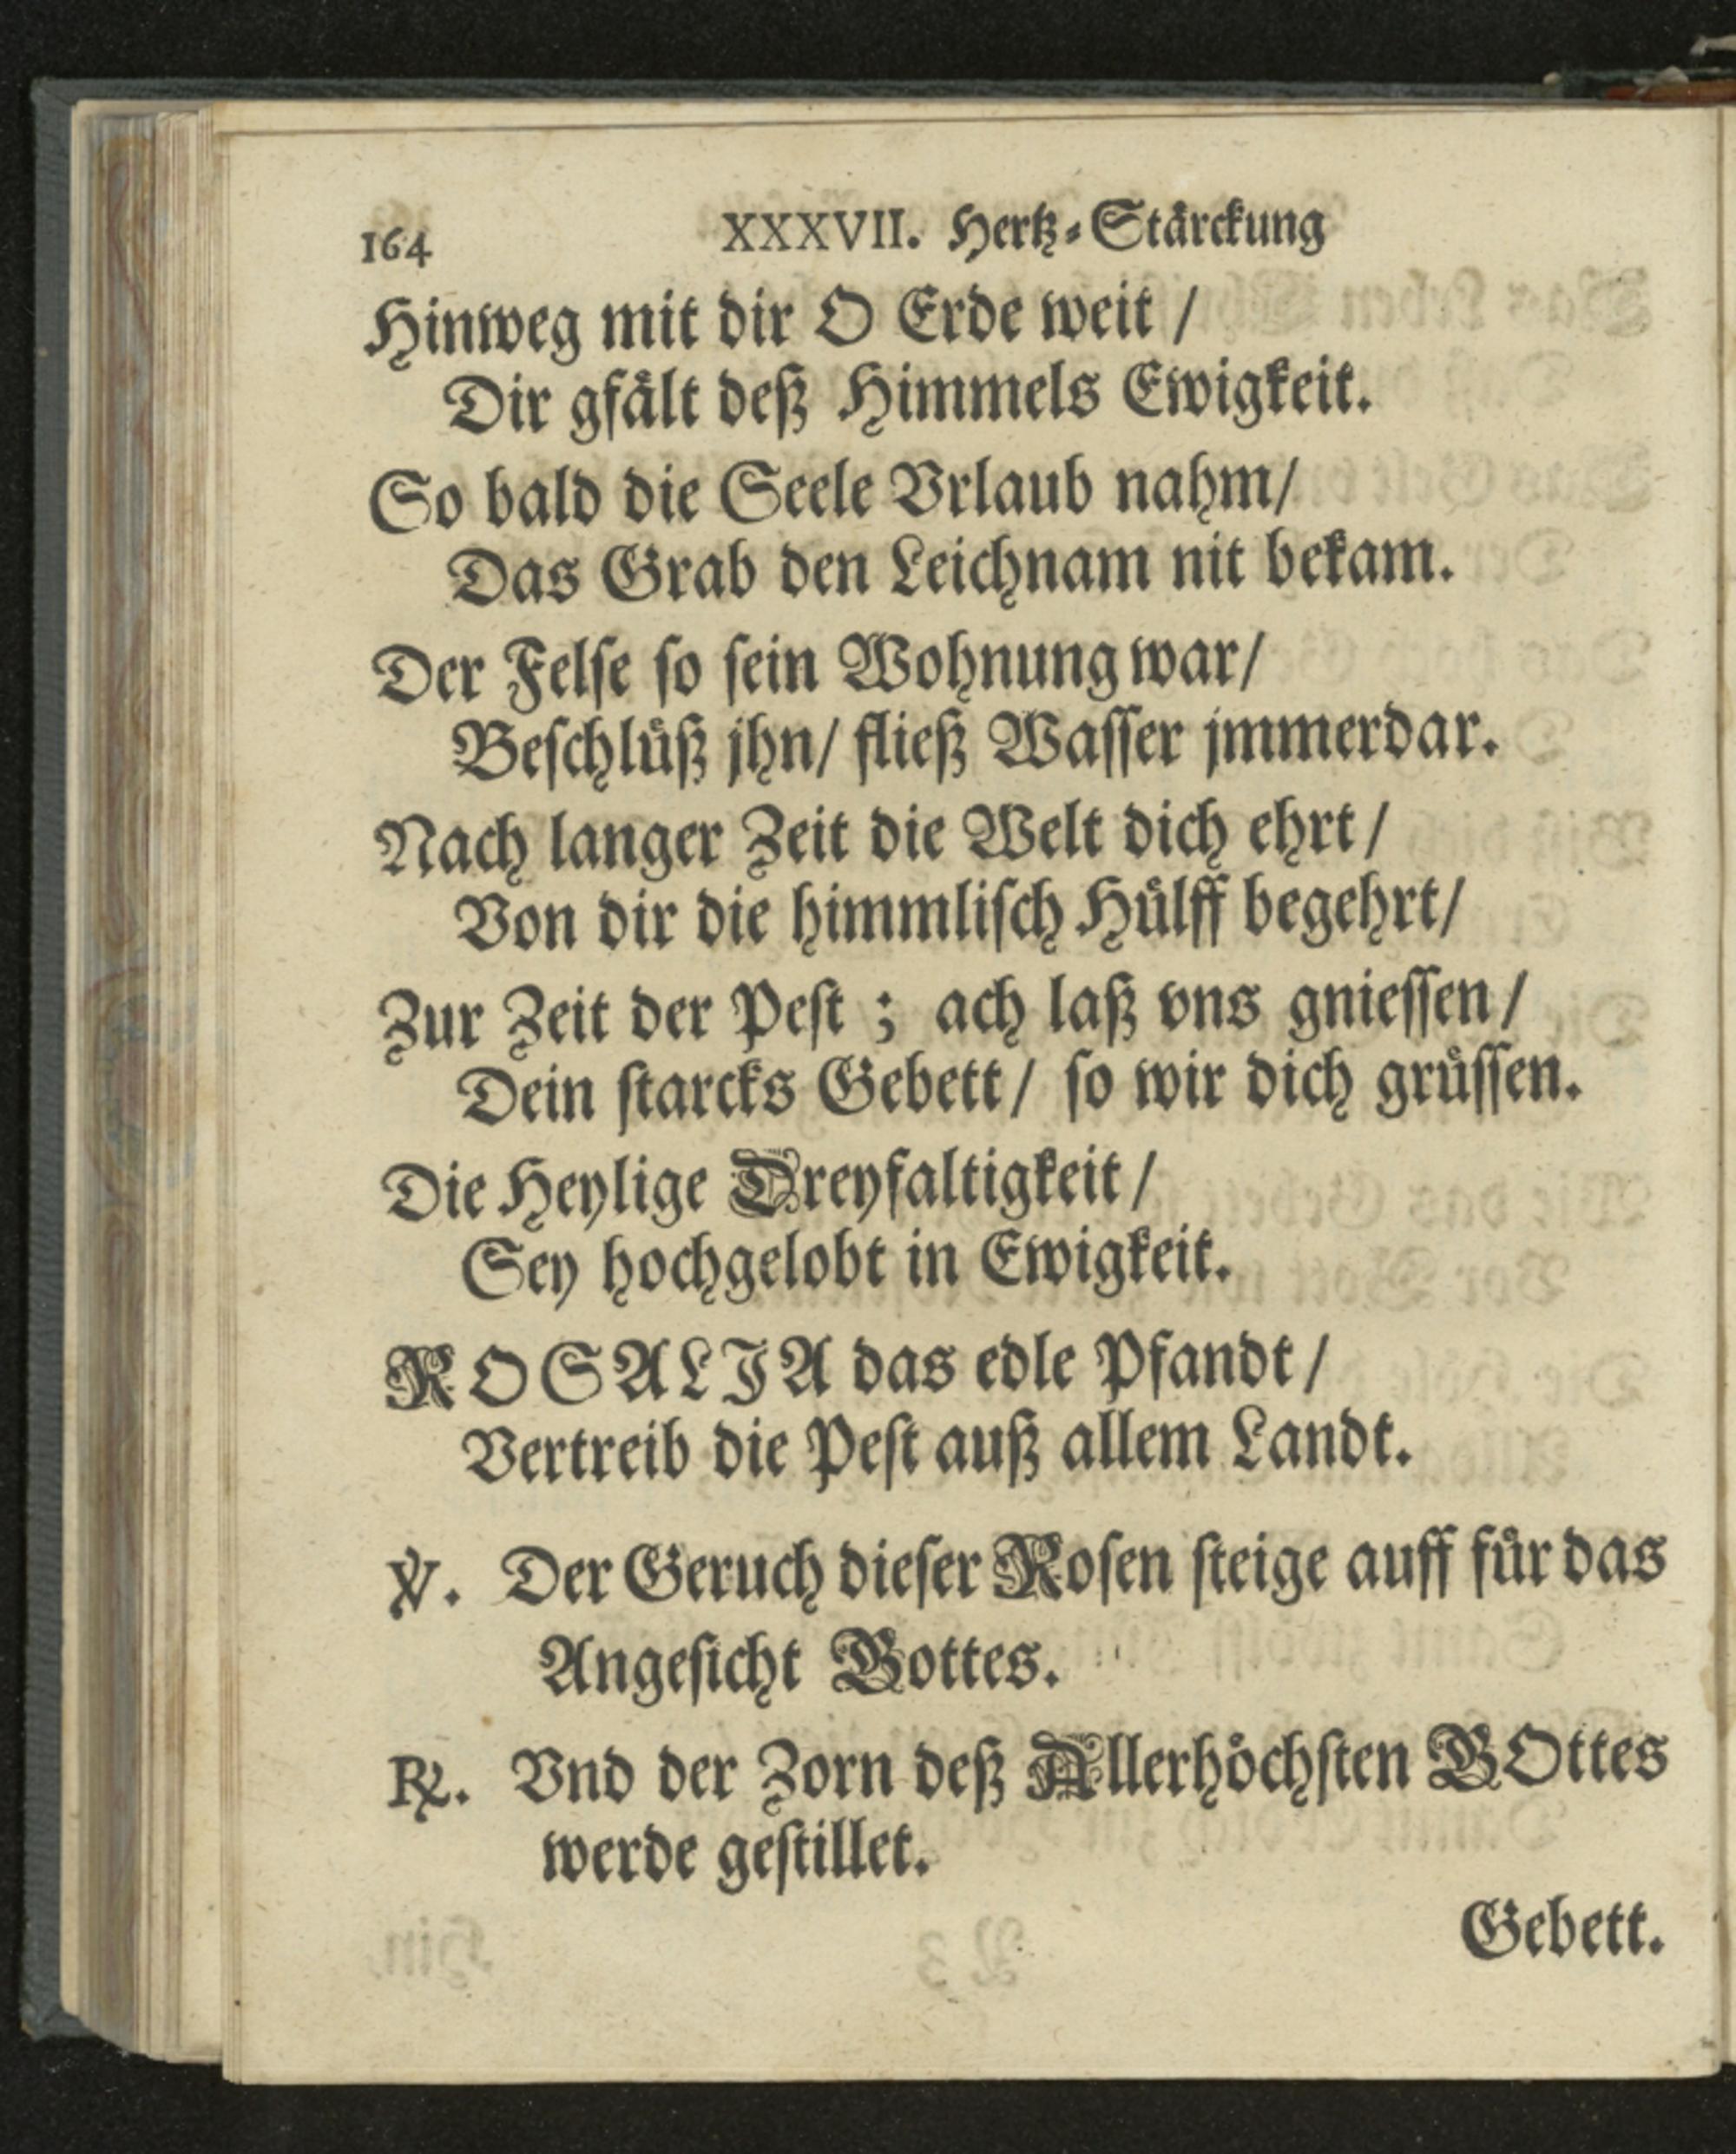 164 XXXVII. Hertz-Stärckung
Hinweg mit dir O Erde weit /
Dir gfält deß Himmels Ewigkeit.
So bald die Seele Vrlaub nahm/
Das Grab den Leichnam nit bekam.
Der Felse so sein Wohnung war/
Beschlüß jhn/ fließ Wasser jmmerdar.
Nach langer Zeit die Welt dich ehrt /
Von dir die himmlisch Hülff begehrt/
Zur Zeit der Pest ; ach laß vns gniessen /
Dein starcks Gebett / so wir dich grüssen.
Die Heylige Dreyfaltigkeit /
Sey hochgelobt in Ewigkeit.
ROSALJA das edle Pfandt /
Vertreib die Pest auß allem Landt.
℣. Der Geruch dieser Rosen steige auff für das
Angesicht Gottes.
℟. Vnd der Zorn deß Allerhöchsten GOttes
werde gestillet.
Gebett.